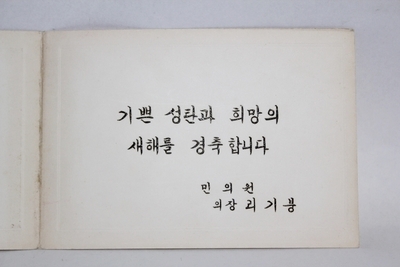 기쁜 성탄과 희망의
새해를 경축합니다
민의원
의장 리기붕